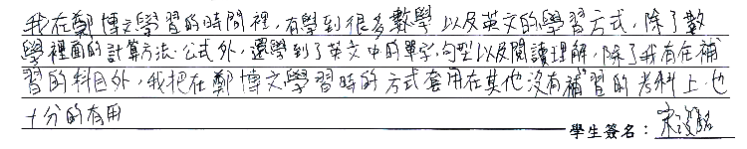 我在鄭博文學習的時間裡，有學到很多數學以及英文的學習方式，除了數
學裡面的計算方法、公式外，還學到了英文中的單字、句型以及閱讀理解，除了我有在補
習的科目外，我把在鄭博文學習時的方式套用在其他沒有補習的考科上，也
十分的有用
學生簽名：宋